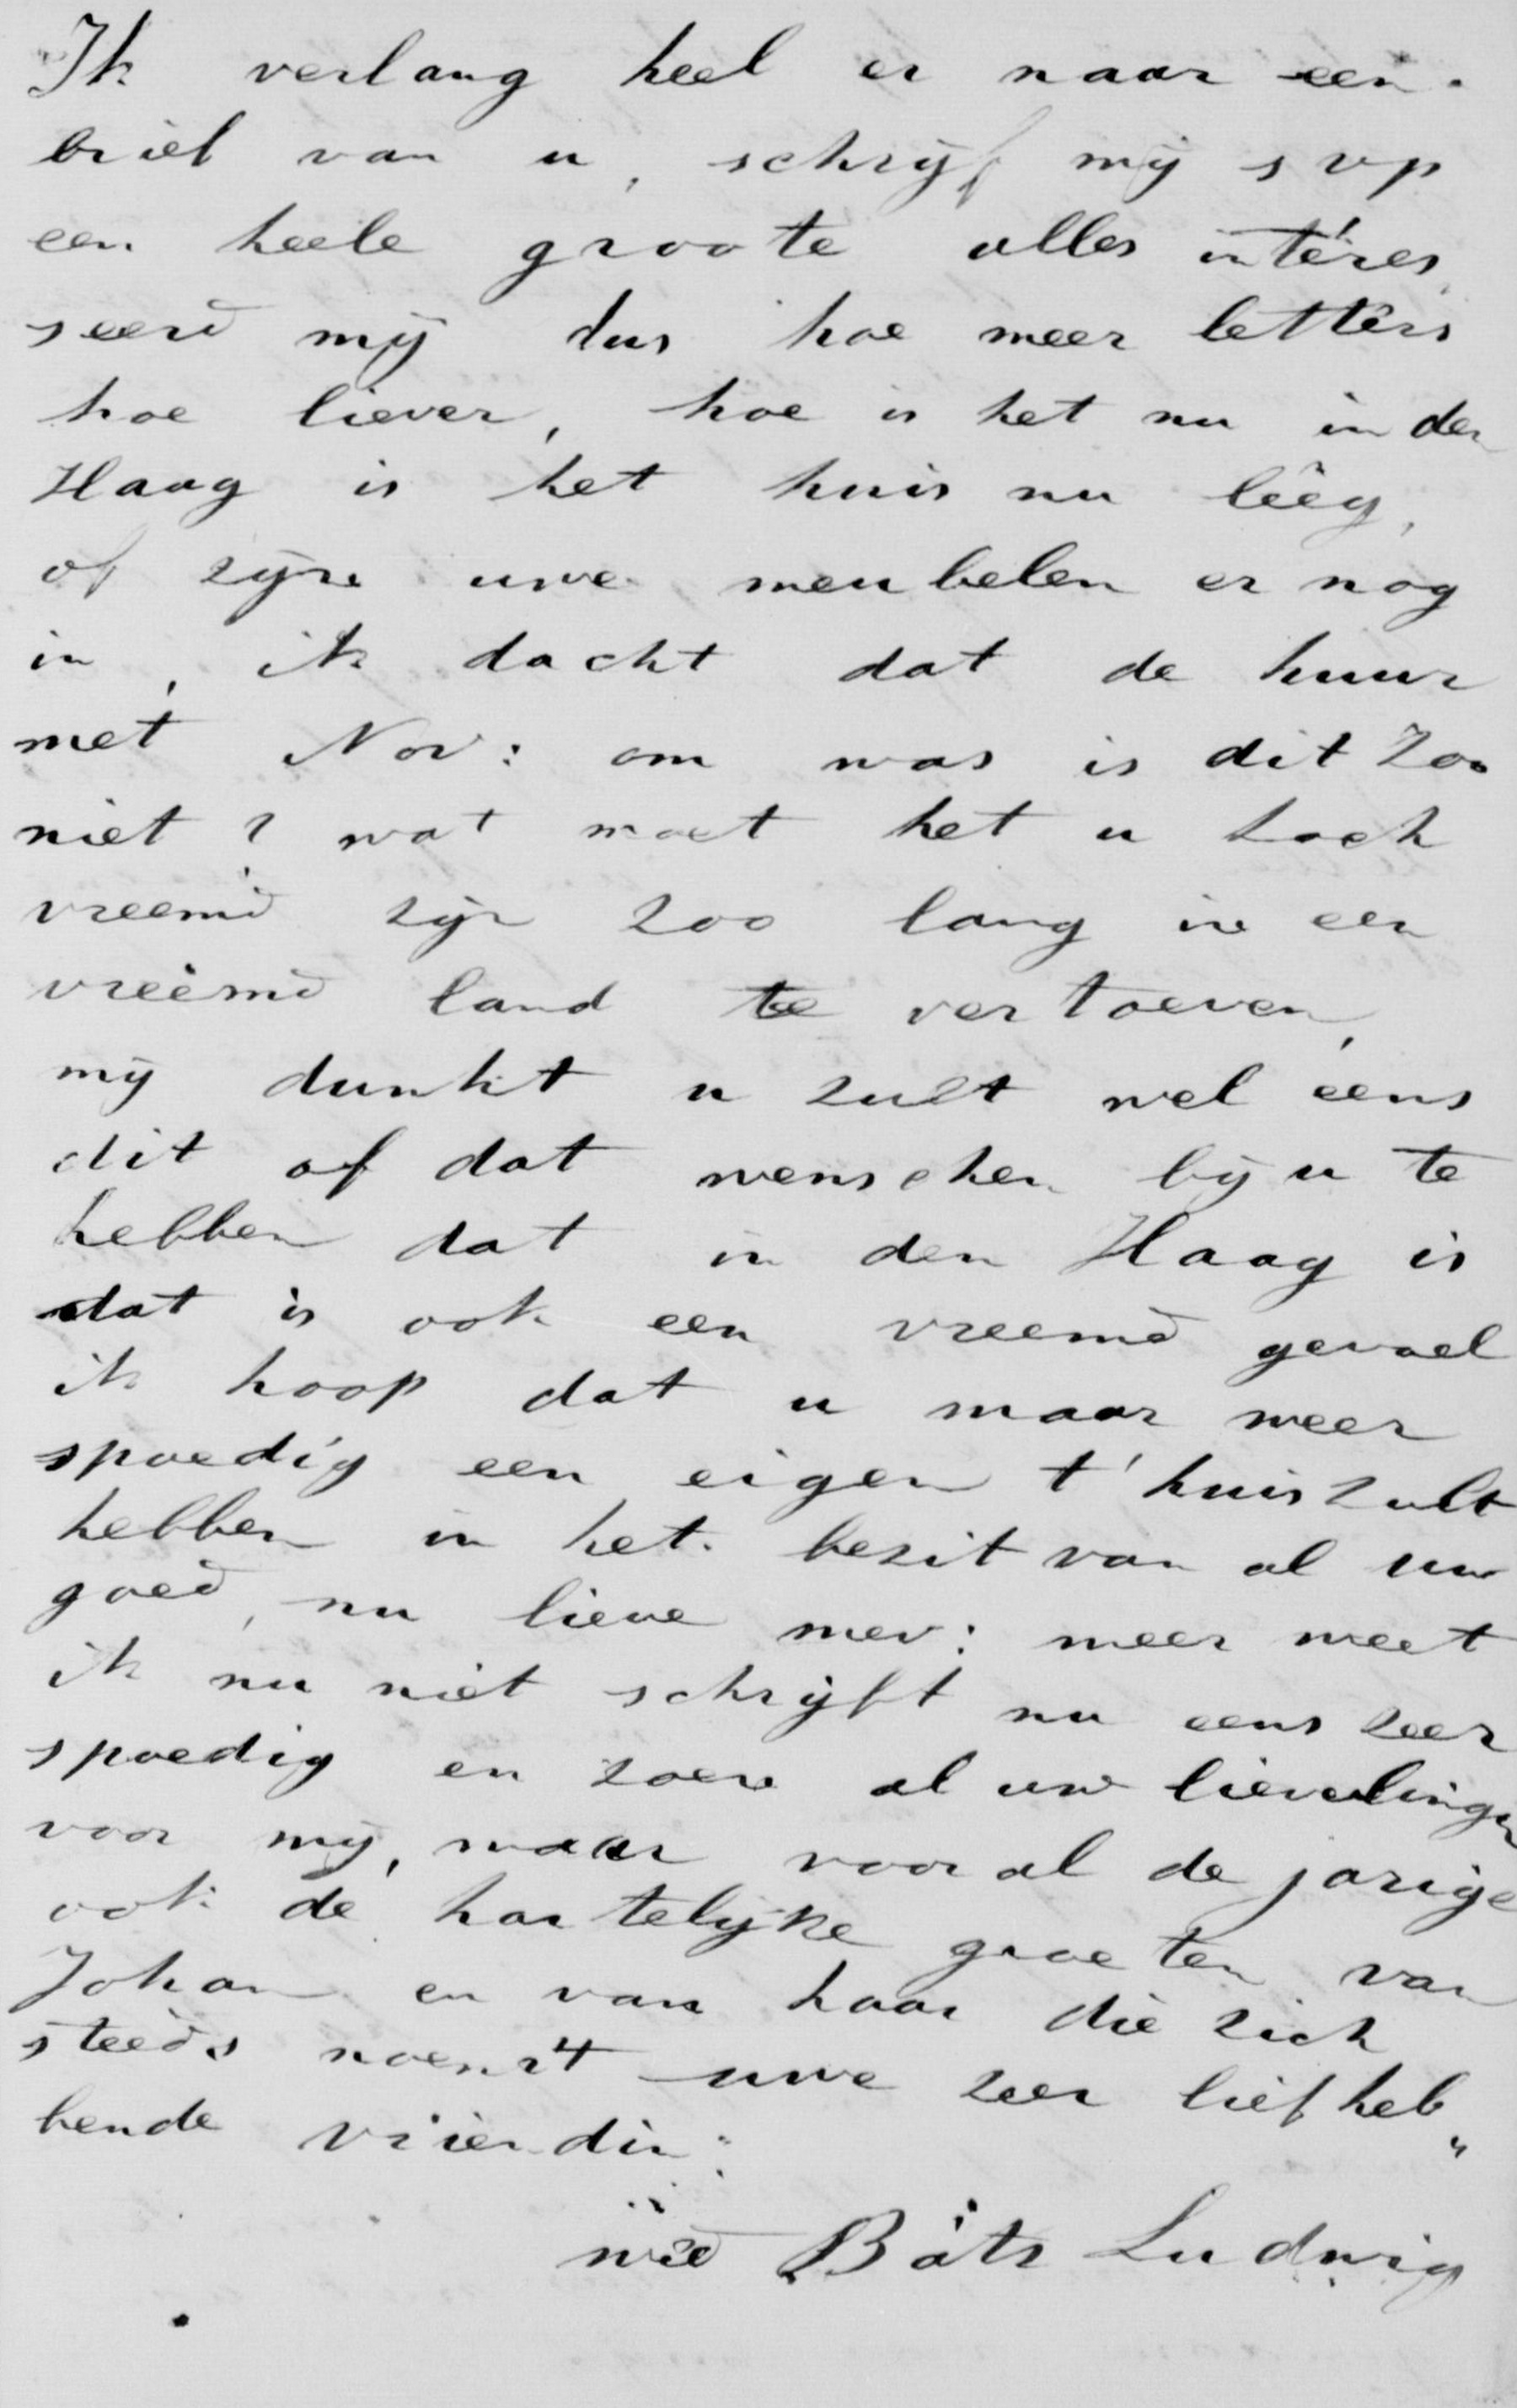 Ik verlang heel er naar een
brief van u, schrijf mij s vp
een heele groote alles intéres
seerd mij dus hoe meer letters
hoe liever, hoe is het nu in den
Haag is het huis nu leêg,
of zijn uwe meubelen er nog
in, ik dacht dat de huur
met Nov: om was is dit zoo
niet? wat moet het u toch
vreemd zijn zoo lang in een
vreemd land te vertoeven,
mij dunkt u zult wel eens
dit of dat wenschen bij u te
hebben dat in den Haag is
dat is ook een vreemd gevoel
ik hoop dat u maar weer
spoedig een eigen t'huis zult
hebben in het bezit van al uw
goed, nu lieve mev: meer weet
ik nu niet schrijft nu eens zeer
spoedig en zoen al uw lievelingen
voor mij, maar vooral de jarige
ook de hartelijke groeten van
Johan en van haar die zich
steeds noemt uwe zeer liefheb„
bende vriendin:
wed Bäts Ludwig